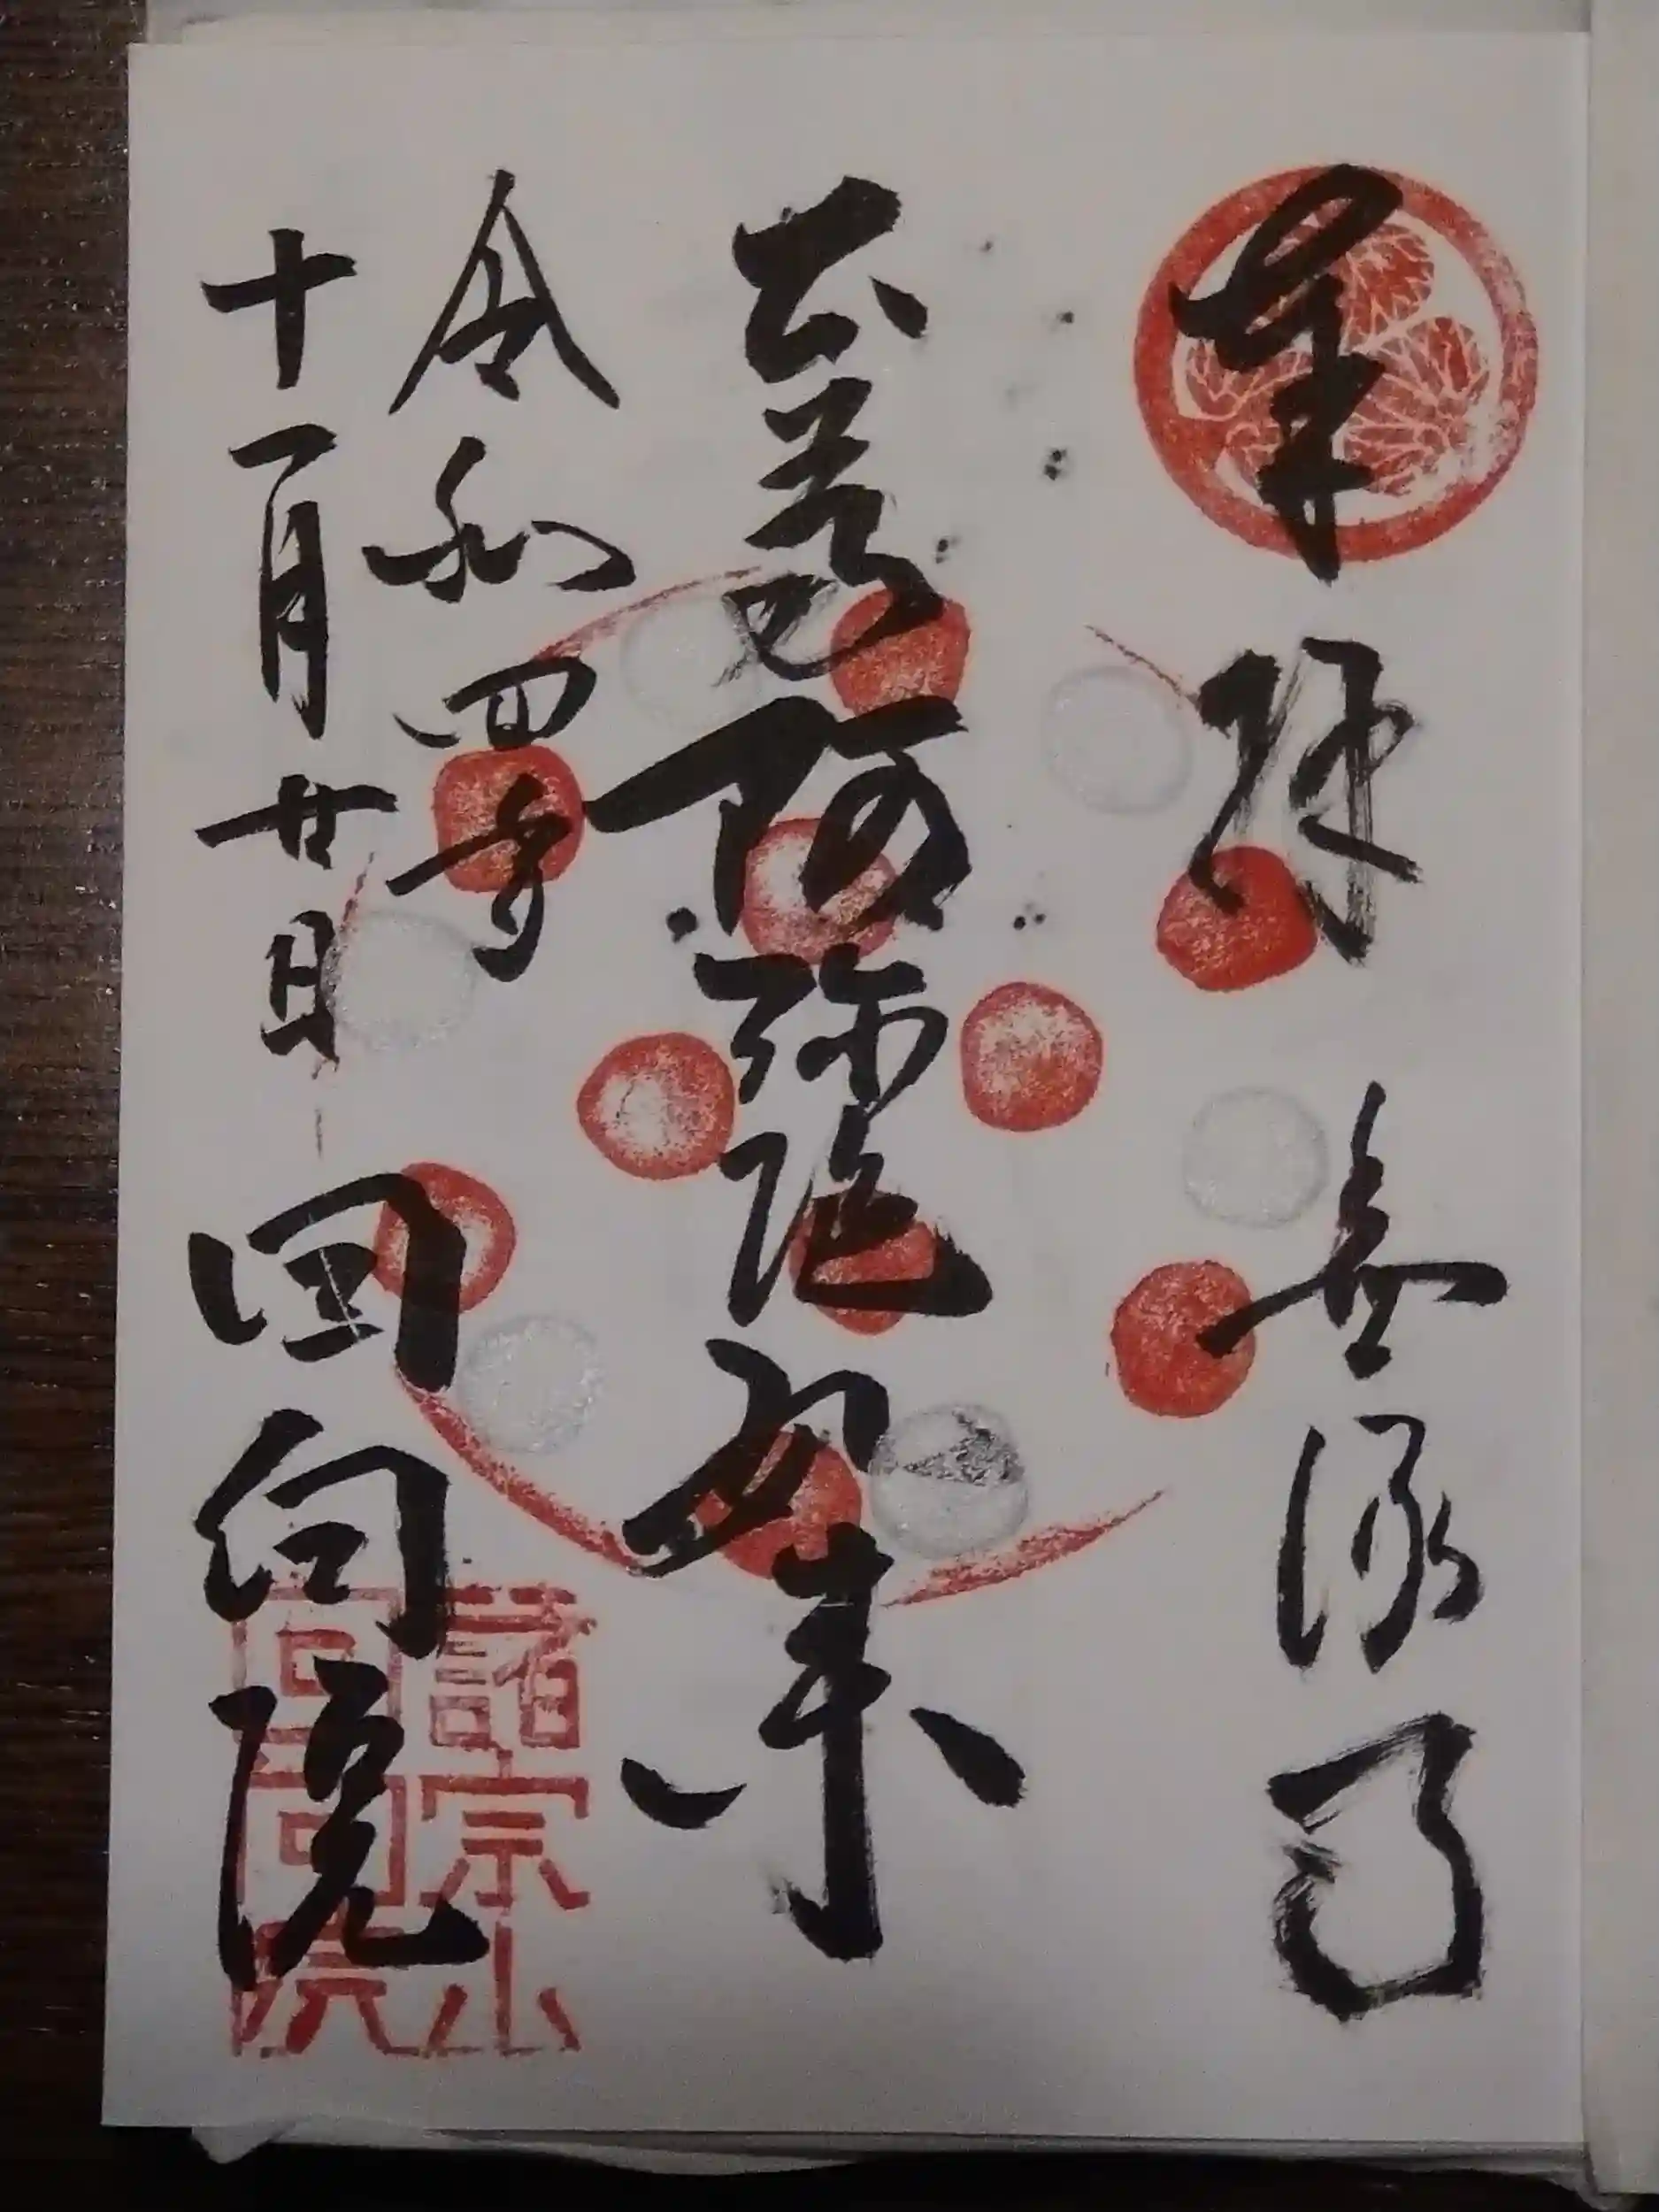 奉拝 無縁寺
本尊阿弥陀如来
令和四年
十一月廿日 回向院
諸宗山
回向院